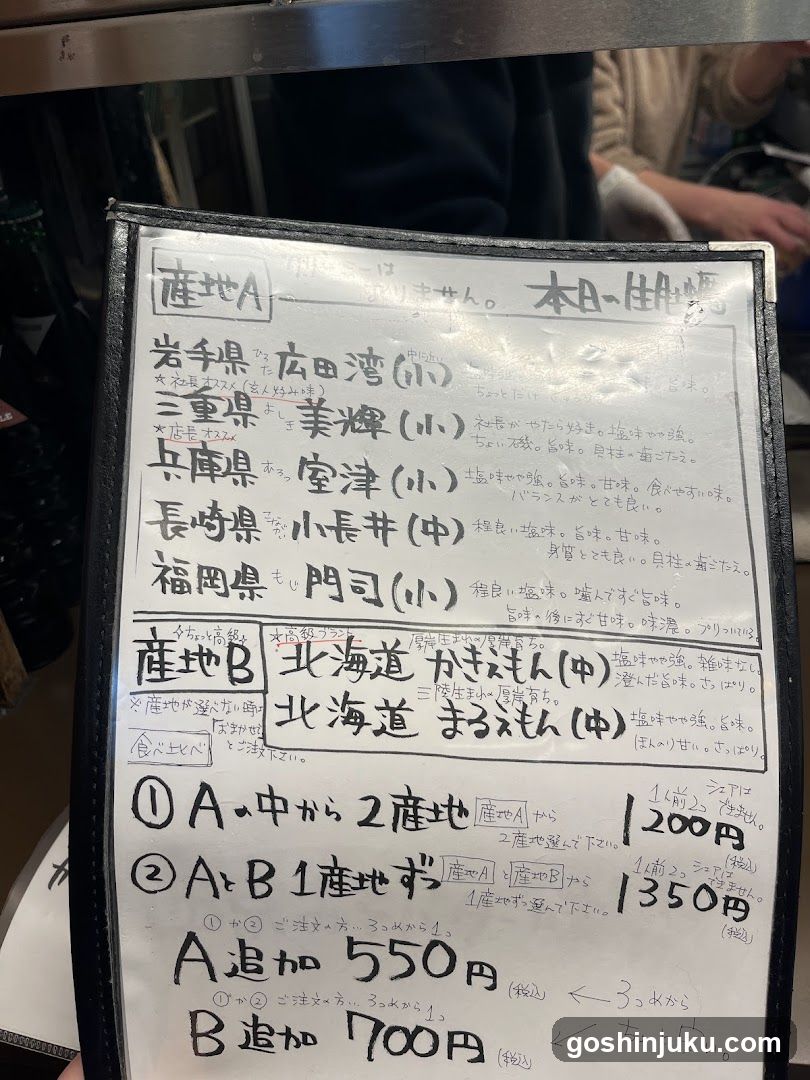 産地A
ありません。
本日の生牡蠣
岩手県 ひろた 広田湾(小)
旨味。
ちょっとだけ
★社長オススメ(玄人好み味)
三重県 よしき 美輝(小)
社長がやたら好き。塩味やや強。
ちょい磯。旨味。貝柱の歯ごたえ。
★店長オススメ
兵庫県 むろつ 室津(小)
塩味やや強。旨味。甘味。食べやすい味。
バランスがとても良い。
長崎県 こながい 小長井(中)
程良い塩味。旨味。甘味。
身質とても良い。貝柱の歯ごたえ。
福岡県 もじ 門司(小)
程良い塩味。噛んですぐ旨味。
旨味の後にすぐ甘味。味濃。プリついている。
☆ちょっと高級☆
産地B
★高級ブランド
厚岸生まれの厚岸育ち。
北海道 かきえもん(中)
塩味やや強。雑味なし。
澄んだ旨味。さっぱり。
三陸生まれの厚岸育ち。
北海道 まるえもん(中)
塩味やや強。旨味。
ほんのり甘い。さっぱり。
※産地が選べない時は
「おまかせ」
とご注文下さい。
食べ比べ
① Aの中から2産地
産地Aから
2産地選んで下さい。
1人前2コ シェアはできません。
1200円
(税込)
② AとB 1産地ずつ
産地Aと産地Bから
1産地ずつ選んで下さい。
1人前2コ シェアはできません。
1350円
(税込)
①か② ご注文の方…3つめから1コ
A追加 550円
(税込)
← 3つめから
①か② ご注文の方…3つめから1コ
B追加 700円
(税込)
goshinjuku.com